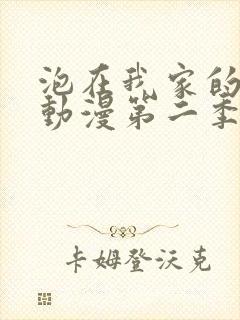 泡在我家的
動漫第二季
卡姆登沃克